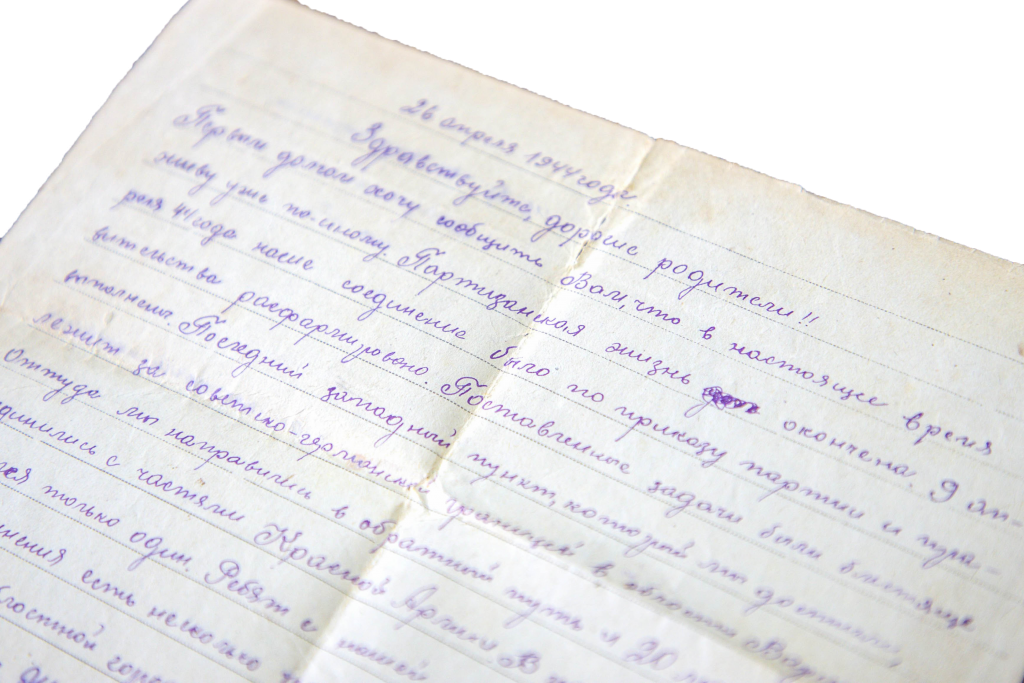 26 апреля 1944 года.
Здравствуйте, дорогие родители!!
Первым долгом хочу сообщить Вам, что в настоящие время
живу уже по-иному. Партизанская жизнь окончена. 9 ап-
реля 44 года наше соединение было по приказу партии и пра-
вительства расфармировано. Поставленные задачи были блестяще
выполнены. Последний западный пункт, который мы достигли,
лежит за советско-германской границей в области
Оттуда мы направились в обратный путь и 30
единились с частями Красной Армии. В
только один. Ребят с нашей
нения есть несколько
бластной горо